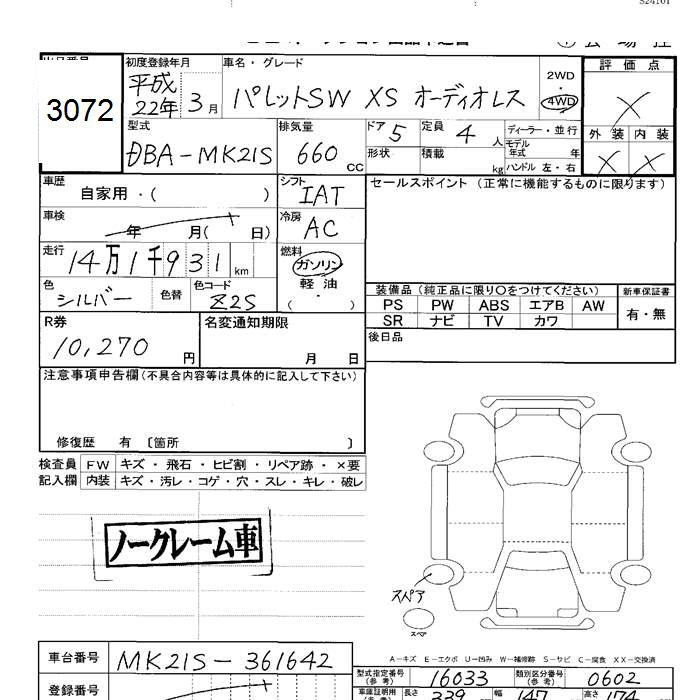 S24101
3072
初度登録年月
平成
22年 3月
車名・グレード
パレットSW XS オーディオレス
2WD
・
4WD
評価点
X
外装 内装
X X
型式
DBA-MK21S
排気量
660 CC
ドア 5
定員 4 人
形状
積載 kg
ディーラー・並行
モデル
年式 年
ハンドル 左・右
車歴
自家用・( )
シフト
IAT
セールスポイント (正常に機能するものに限ります)
車検
年 月( 日)
冷房
AC
走行
14万1千931 km
燃料
ガソリン
軽油
・
( )
色
シルバー
色替
色コード
Z2S
装備品(純正品に限り○をつけてください)
新車保証書
PS PW ABS エアB AW
有・無
SR ナビ TV カワ
R券
10,270 円
名変通知期限
月 日
後日品
注意事項申告欄(不具合内容等は具体的に記入して下さい)
修復歴 有 〔箇所 〕
検査員 FW キズ・飛石・ヒビ割・リペア跡・×要
記入欄 内装 キズ・汚レ・コゲ・穴・スレ・キレ・破レ
ノークレーム車
スペア
スペア
A-キズ E-エクボ U-凹み W-補修跡 S-サビ C-腐食 XX-交換済
車台番号 MK21S-361642
型式指定番号
(参考)
16033
類別区分番号
(参考)
0602
登録番号
車庫証明用
長さ 339 幅 147 高さ 174